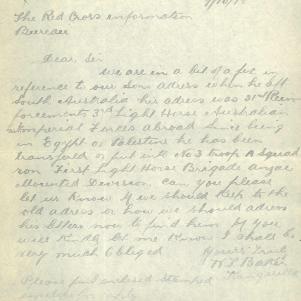 The Red Cross information
Bureau
Dear Sir
We are in a bit of a fix in
reference to our Sons adress when he left
South Australia his adress was 31st Rein
forcements 3rd Light Horse Australian
Imperial Forces abroad since being
in Egypt or Palestine he has been
transfered or put into No 3 troop A Squad
ron First Light Horse Brigade anzac
Mounted Division. Can you please
let us Know if we should Keep to the
old adress or how we should adress
his letters now to find him if you
will Kindly let me Know I shall be
very much Obliged
Yours truly
Please find enclosed Stamped